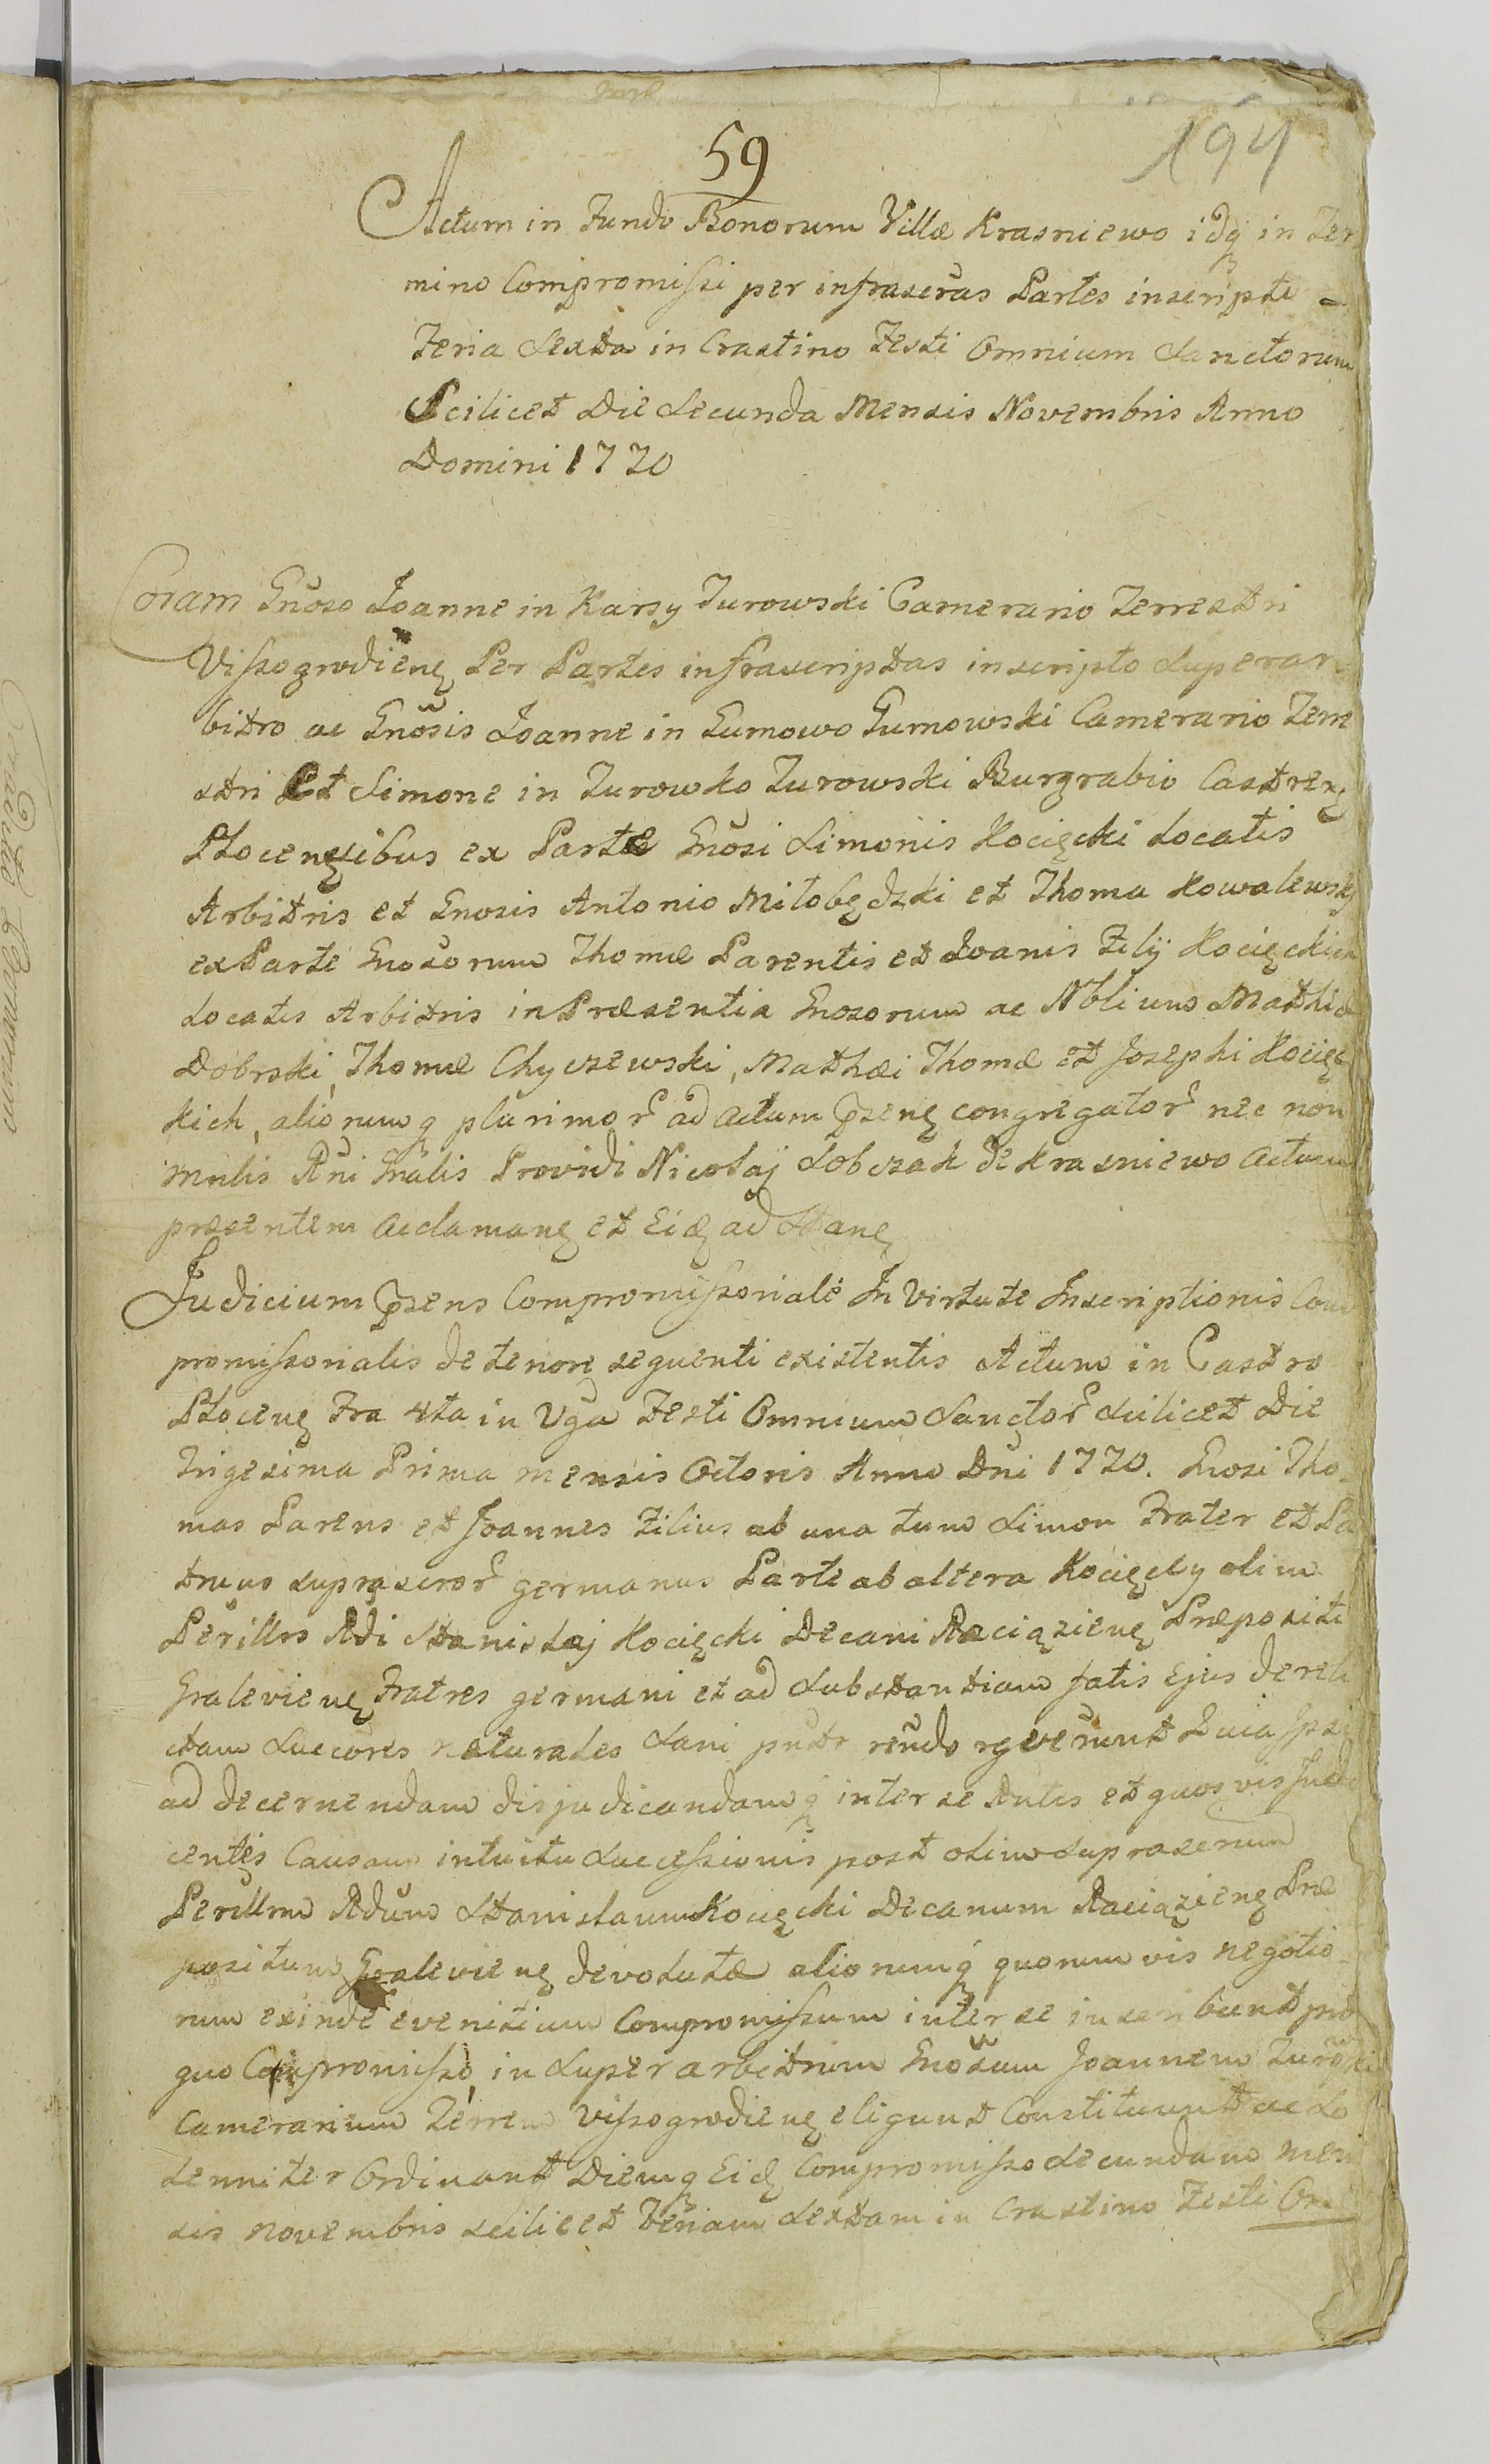 59
194
Actum in Fundo Bonorum Villæ Krasniewo idq in Ter
mino Compromissi per infrascras Partes inscripti
Feria Sexta in Crastino Festi Omnium Sanctorum
Scilicet Die Secunda Mensis Novembris Anno
Domini 1770
Coram Gnoso Joanne in Karsy Turowski Camerario Terrestri
Vissogrodieng Per Partes infrascriptas inscripto Superar
bitro ac Gnosis Joanne in Gumowo Gumowski Camerario Terre
stri Et Simone in Turowko Turowski Burgrabio Castreng
Plocengsibus ex Parte Gnosi Simonis Kocięcki Locatis
Arbitris et Gnosis Antonio Miłobędzki et Thoma Kowalewski
ex Parte Gnosorum Thomæ Parentis et Joanis Filij Kocięckich
Locatis Arbitris in Præsentia Gnosorum ac Nobilium Mathiæ
Dobrski, Thomæ Chyczewski, Mathæi Thomæ et Josephi Kocięc
kich, aliorumq plurimor ad actum pseng congregator nec non
Mnlis Rni Gnalis Providi Nicolaj Sobczak de Krasniewo Actum
præsentem acclamang et Eidq ad Stang
Judicium psens Compromissoriale In Virtute Inscriptionis Com
promissorialis de tenore sequenti existentis Actum in Castro
Ploceng Fra 4ta in Vga Festi Omnium Sanctor Scilicet Die
Trigesima Prima mensis Octoris Anno Dni 1770. Gnosi Tho
mas Parens et Joannes Filius ab una tum Simon Frater et Pa
truus suprascror germanus Parte ab altera Kocięcky olim
Perillris Rdi Stanislaj Kocięcki Decani Raciązieng Præpositi
Graleviеng Fratres germani et ad Substantiam fatis Ejus dereli
ctam Succores naturales Sani pntr rendo rgverunt Quia Ipsi
ad decernendam disjudicandamq inter se Rntis et quosvis Succe
centes Causam intuitu Successionis post olim suprascrum
Perillrm Rdum Stanislaum Kocięcki Decanum Raciązieng Præ
positum Gralevieng devolutæ aliorumq quorumvis negotio
rum exinde evenitium Compromissum inter se inscribunt pro
quo Compromisso, in Superarbitrum Gnosum Joannem Turowski
Camerarium Terrem Vissogrodieng eligunt Constituunt ac So
lenniter Ordinant Diemq Eidq Compromisso Secundam Men
sis Novembris scilicet Feriam Sextam in Crastino Festi Om